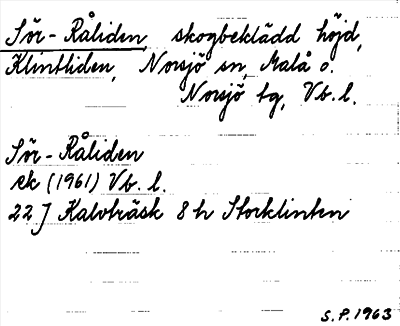 Sör-Råliden, skogbeklädd höjd,
Klintliden, Norsjö sn, Malå o.
Norsjö tg, Vb. l.
Sör-Råliden
ek (1961) Vb. l.
22 J Kalvträsk 8 h Storklinten
S.P. 1963